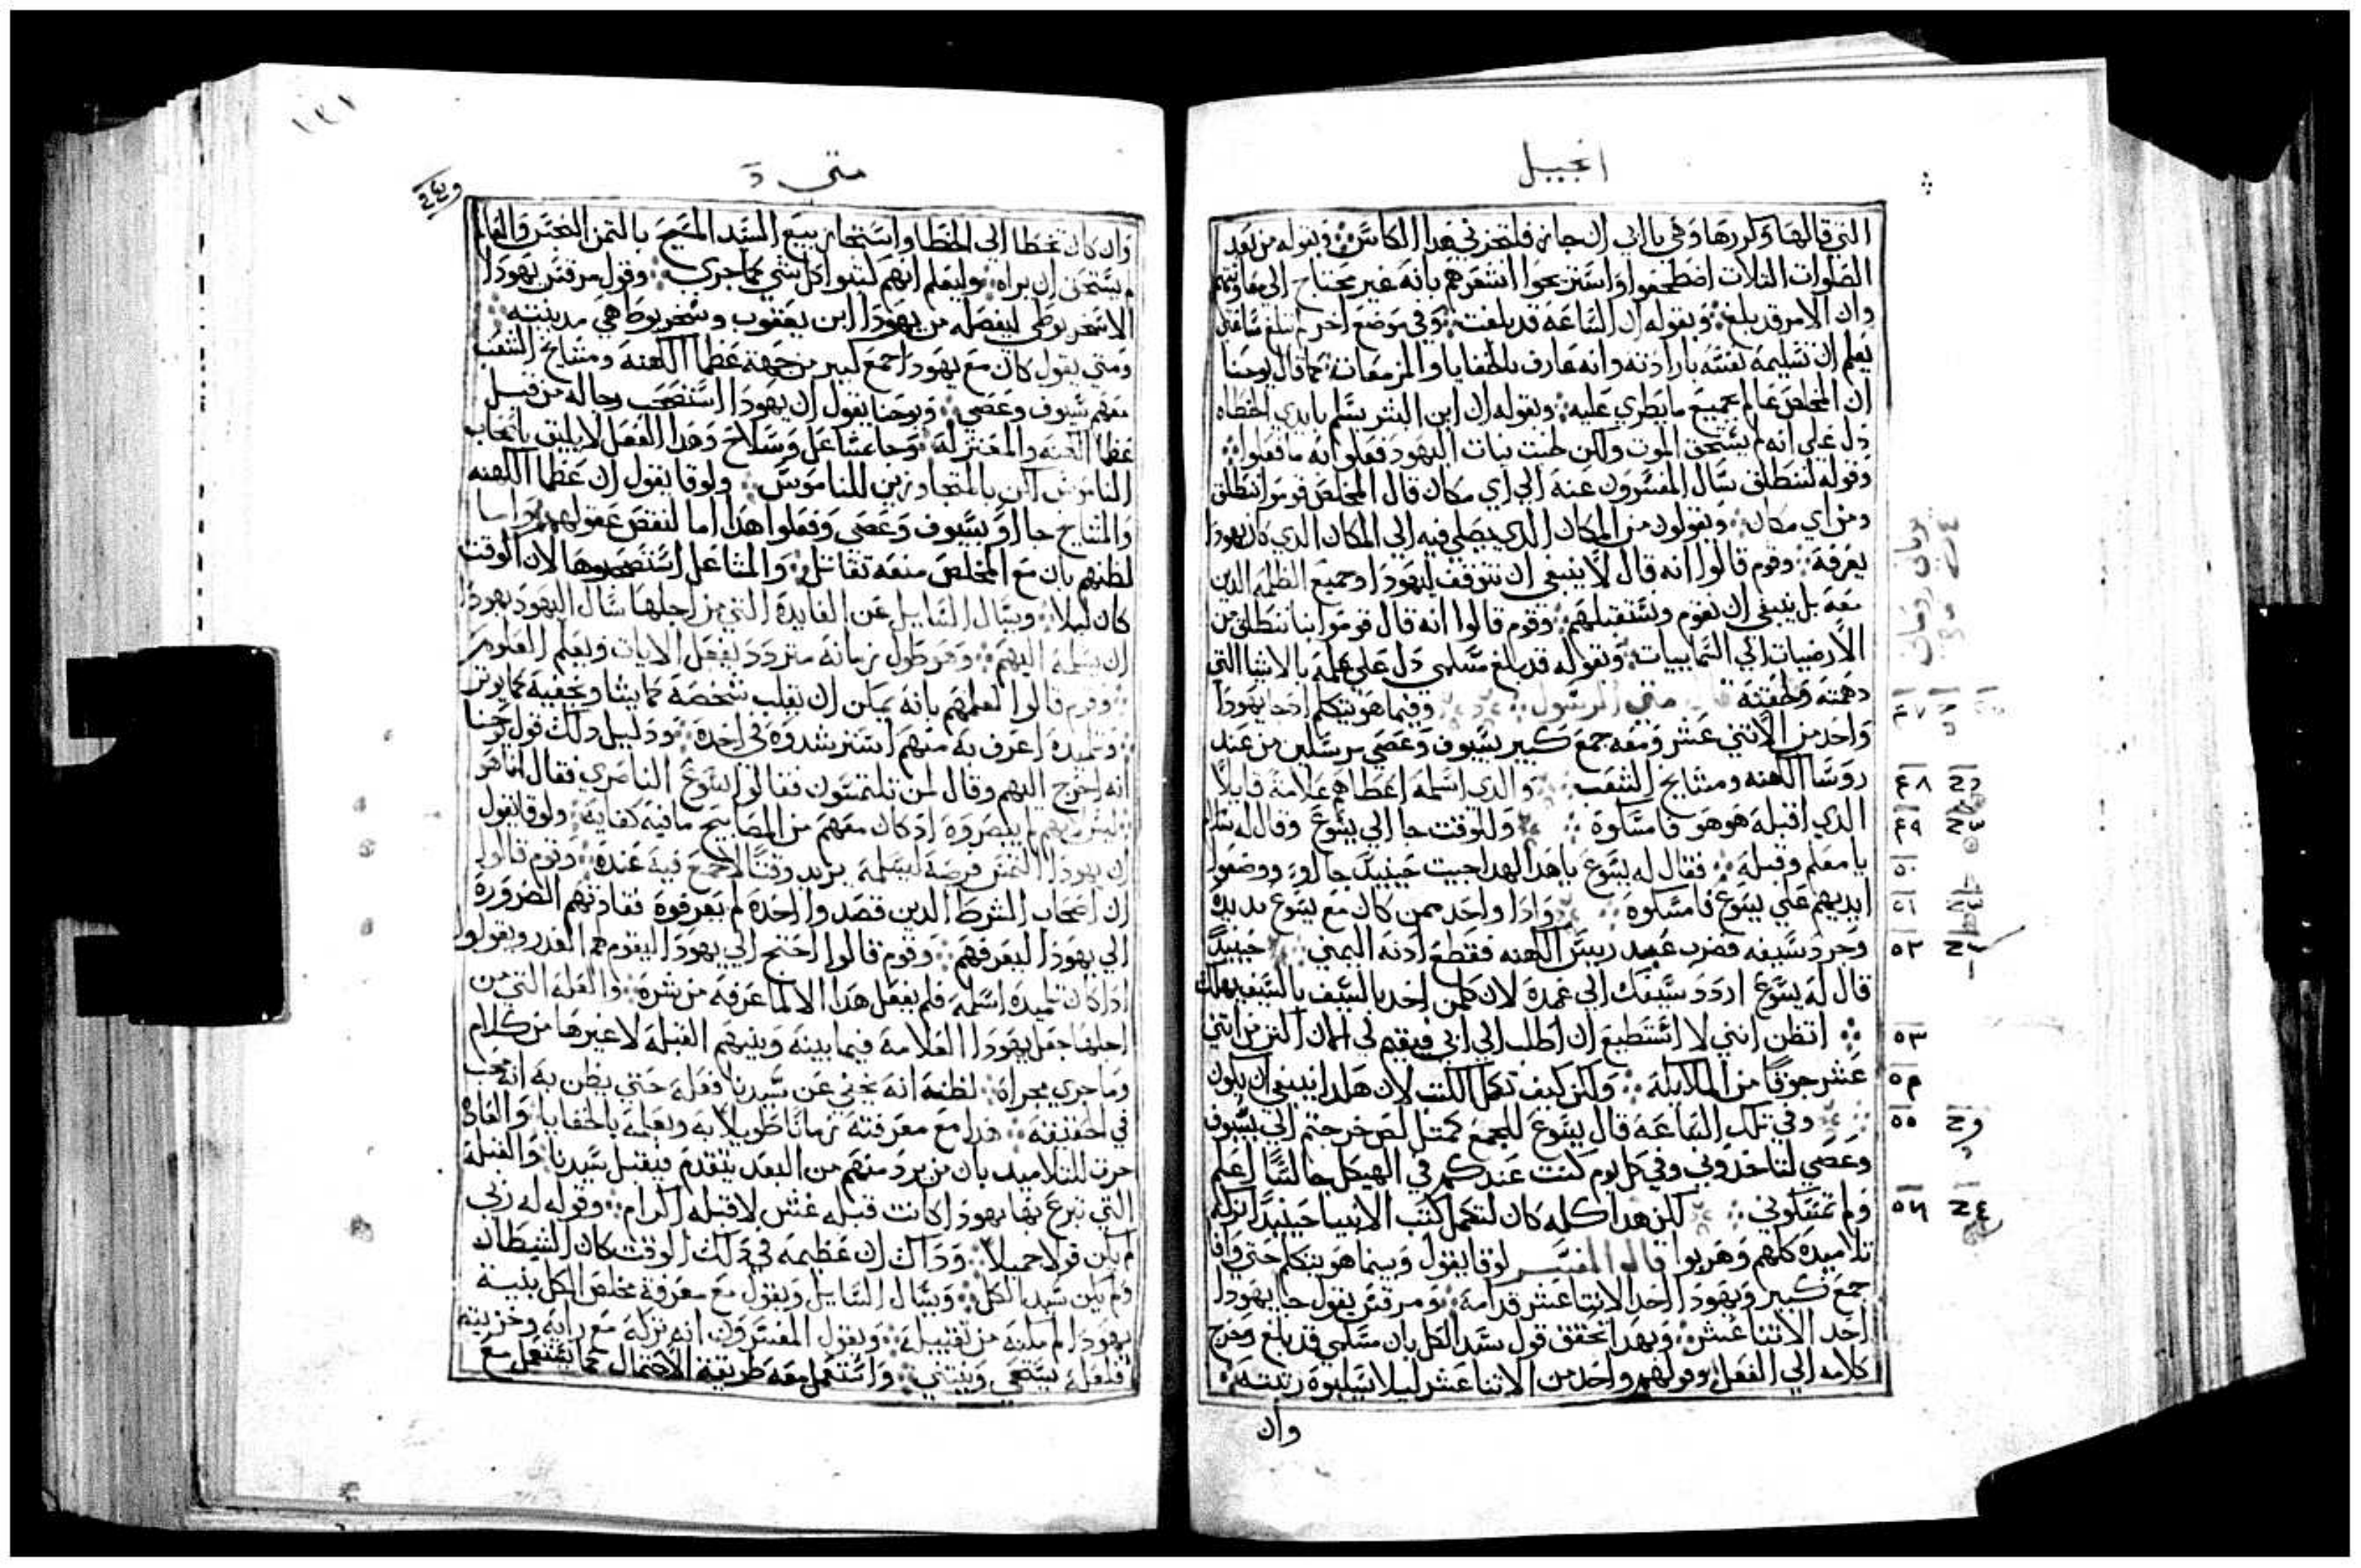 انجيل
التي قالها وكررها وهي يا ابي ان جاز فلتعبرني هذا الكاس وبقوله من بعد
الصلوات الثلاث اضطجعوا واستريحوا اشعرهم بانه غير محتاج الي معاونتهم
وان الامر قد بلغ وبقوله ان الساعه قد بلغت وفي موضع اخر لم تبلغ ساعتي
يعلم ان تسليمه نفسه بارادته وانه عارف بالخفايا والمزمعات كما قال يوحنا
ان المخلص عالم بجميع ما يطري عليه وبقوله ان ابن البشر يسلم بايدي الخطاه
دل علي انه لم يستحق الموت ولكن خبث نيات اليهود فعلوا به ما فعلوا
وقوله لننطلق سال المفسرون عنه الي اي مكان قال المخلص قوموا ننطلق
ومن اي مكان ويقولون من المكان الذي يصلي فيه الي المكان الذي كان يهودا
يعرفه وقوم قالوا انه قال لا ينبغي ان نتوقف ليهودا وجميع الظلمه الذين
معه بل ينبغي ان نقوم ونستقبلهم وقوم قالوا انه قال قوموا بنا ننطلق من
الارضيات الي السماييات وبقوله قد بلغ مسلمي دل علي علمه بالاشيا التي
دهمته ولحقته قال متي الرسول وفيما هو يتكلم اذ جا يهودا
واحد من الاثني عشر ومعه جمع كبير بسيوف وعصي مرسلين من عند
روسا الكهنه ومشايخ الشعب والذي اسلمه اعطاهم علامة قايلا
الذي اقبله هو هو فامسكوه وللوقت جا الي يسوع وقال له سلام
يا معلم وقبله فقال له يسوع يا هذا لهذا جيت حينيذ جاوا ووضعوا
ايديهم علي يسوع فامسكوه واذا واحد ممن كان مع يسوع مد يده
وجرد سيفه فضرب عبد رييس الكهنه فقطع اذنه اليمني حينيذ
قال له يسوع اردد سيفك الي غمده لان كل من اخذ بالسيف بالسيف يهلك
اتظن انني لا استطيع ان اطلب الي ابي فيقيم لي هاهنا اكثر من اثني
عشر جوقا من الملايكه ولكن كيف تكمل الكتب لان هكذا ينبغي ان يكون
وفي تلك الساعه قال يسوع للجمع كمثل لص خرجتم الي بسيوف
وعصي لتاخذوني وفي كل يوم كنت عندكم في الهيكل جالسا اعلم
ولم تمسكوني لكن هذا كله كان لتكمل كتب الانبيا حينيذ تركه
تلاميذه كلهم وهربوا قال المفسر لوقا يقول وبينما هو يتكلم حتي وافا
جمع كبير ويهودا احد الاثنا عشر قدامه ومرقس يقول جا يهودا
احد الاثنا عشر وبهذا تحقق قول سيد الكل بان مسلمي قد بلغ وخرج
كلامه الي الفعل وقولهم واحد من الاثنا عشر ليلا يسلبوه رتبته
وان
٤٧
٤٨
٤٩
٥٠
٥١
٥٢
٥٣
٥٤
٥٥
٥٦
متي
وان كان تخطا الي الخطا واستجاز بيع السيد المسيح بالثمن البخس والقايه
لم يستحق ان يراه وليعلم انهم كتبوا كل شي كما جري وقول مرقس يهودا
الاسخريوطي ليفصله من يهودا ابن يعقوب وسخريوطا هي مدينته
ومتي يقول كان مع يهودا جمع كبير من جهة عظما الكهنه ومشايخ الشعب
معهم سيوف وعصي ويوحنا يقول ان يهودا استصحب رجاله من قبل
عظما الكهنه والمعتزله وجا بمشاعل وسلاح وهذا الفعل لا يليق باصحاب
الناموس لكن بالمتجاوزين للناموس ولوقا يقول ان عظما الكهنه
والمشايخ جاوا بسيوف وعصي وفعلوا هذا اما لنقص عقولهم واما
لظنهم بان مع المخلص منعه تقاتل والمشاعل استصحبوها لان الوقت
كان ليلا ويسال السايل عن الفايده التي من اجلها سال اليهود يهودا
ان يسلمه اليهم وهو طول زمانه متردد يفعل الايات ويعلم العلوم
وقوم قالوا لعلمهم بانه يمكن ان يقلب شخصه كما يشا ويخفيه كما يوثر
وتلميذه اعرف به منهم استرشدوه في اخذه ودليل ذلك قول يوحنا
انه اخرج اليهم وقال لمن تلتمسون فقالوا ليسوع الناصري فقال انا هو
لم يبصروه اذ كان معهم من المصابيح ما فيه كفايه ولوقا يقول
ان يهودا التمس فرصة ليسلمه يريد وقتا لا جمع فيه عنده وقوم قالوا
ان اصحاب الشرط الذين قصدوا اخذه لم يعرفوه فقادتهم الضروره
الي يهودا ليعرفهم وقوم قالوا احتج الي يهودا ليقوم لهم العذر ويقولوا
اذا كان تلميذه اسلمه فلم يفعل هذا الا لما عرفه من شره والعله التي من
اجلها جعل يهودا العلامه فيما بينه وبينهم القبله لا غيرها من كلام
وما جري مجراه لظنه انه يخفي عن سيدنا فعله حتي يظن به انه محب
في الحقيقه هذا مع معرفته زمانا طويلا به وبعلمه بالخفايا والعاده
جرت للتلاميذ بان من يرد منهم من البعد يتقدم فيقبل سيدنا والقبله
التي تبرع بها يهودا كانت قبله غش لا قبله اكرام وقوله له ربي
لم يكن قولا جميلا وذاك ان عظيمه في ذلك الوقت كان الشيطان
ولم يكن سيد الكل ويسال السايل ويقول مع معرفة مخلص الكل بنية
يهودا لم مكنه من تقبيله ويقول المفسرون انه تركه مع رايه وخزيته
فلعله يستحي وينثني واستعمل معه طريقة الاحتمال كما يستعمل مع